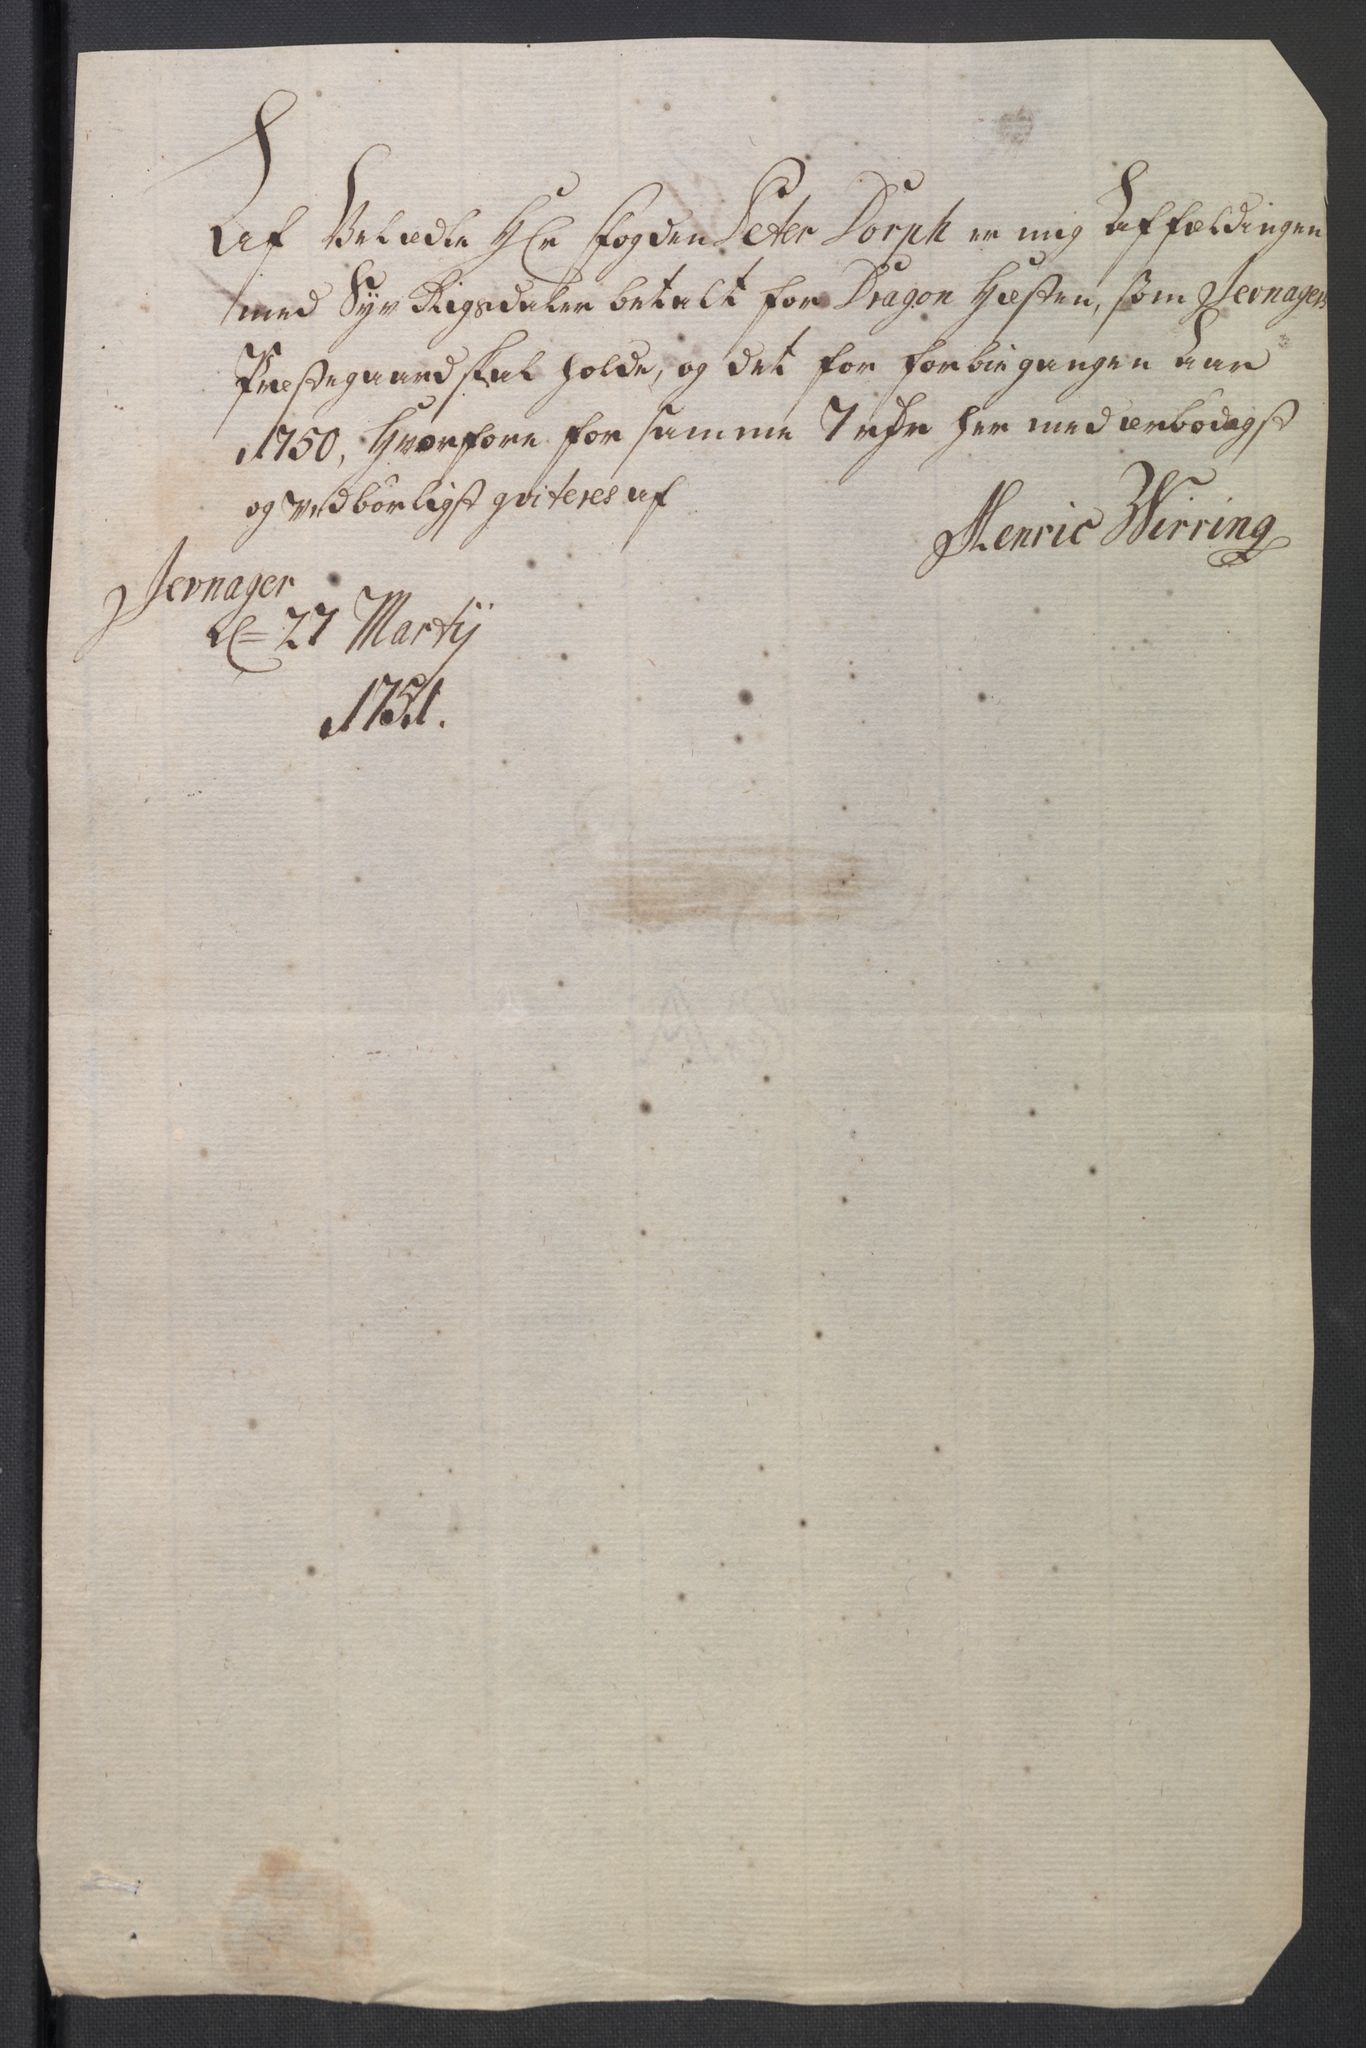 Af Velædle Hr Fogden Peter Dorph er mig Affældingen
med Syv Rigsdaler betalt for Dragon Hæsten, som Jevnager
Præstegaard skal holde, og det for forbiegangen Aar
1750, Hvorfore for samme 7 rdr her med ærbødigst
og vedbørligst qviteres af
Henric Wirring
Jevnager
d 27 Martij
1751.